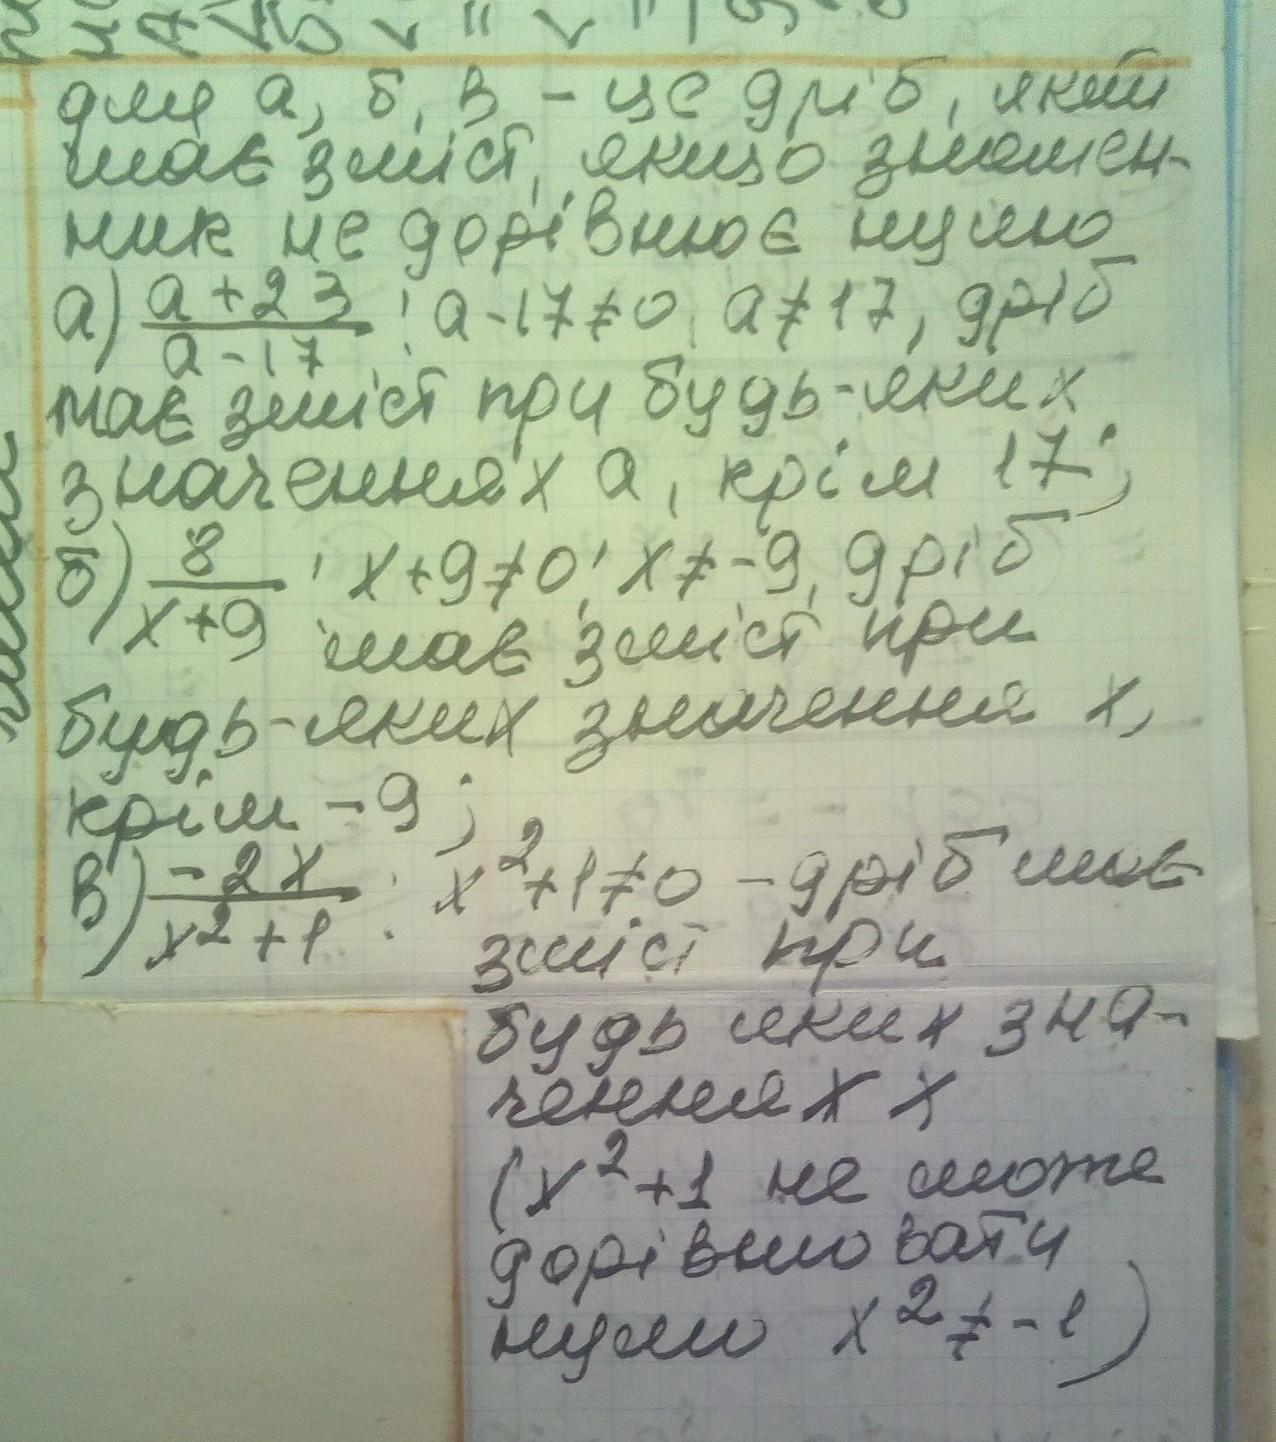 для а, б, в - це дріб, який
має зміст, якщо знамен-
ник не дорівнює нулю
а) a+23 : a-17≠0, a≠17, дріб
a-17
має зміст при будь-яких
значеннях a, крім 17;
б) 8 : x+9≠0; x≠-9, дріб
x+9 має зміст при
будь-яких значення x,
крім -9;
в) -2x : x²+1≠0 - дріб має
x²+1 зміст при
будь яких зна-
ченнях x
(x²+1 не може
дорівнювати
нулю x²≠-1)